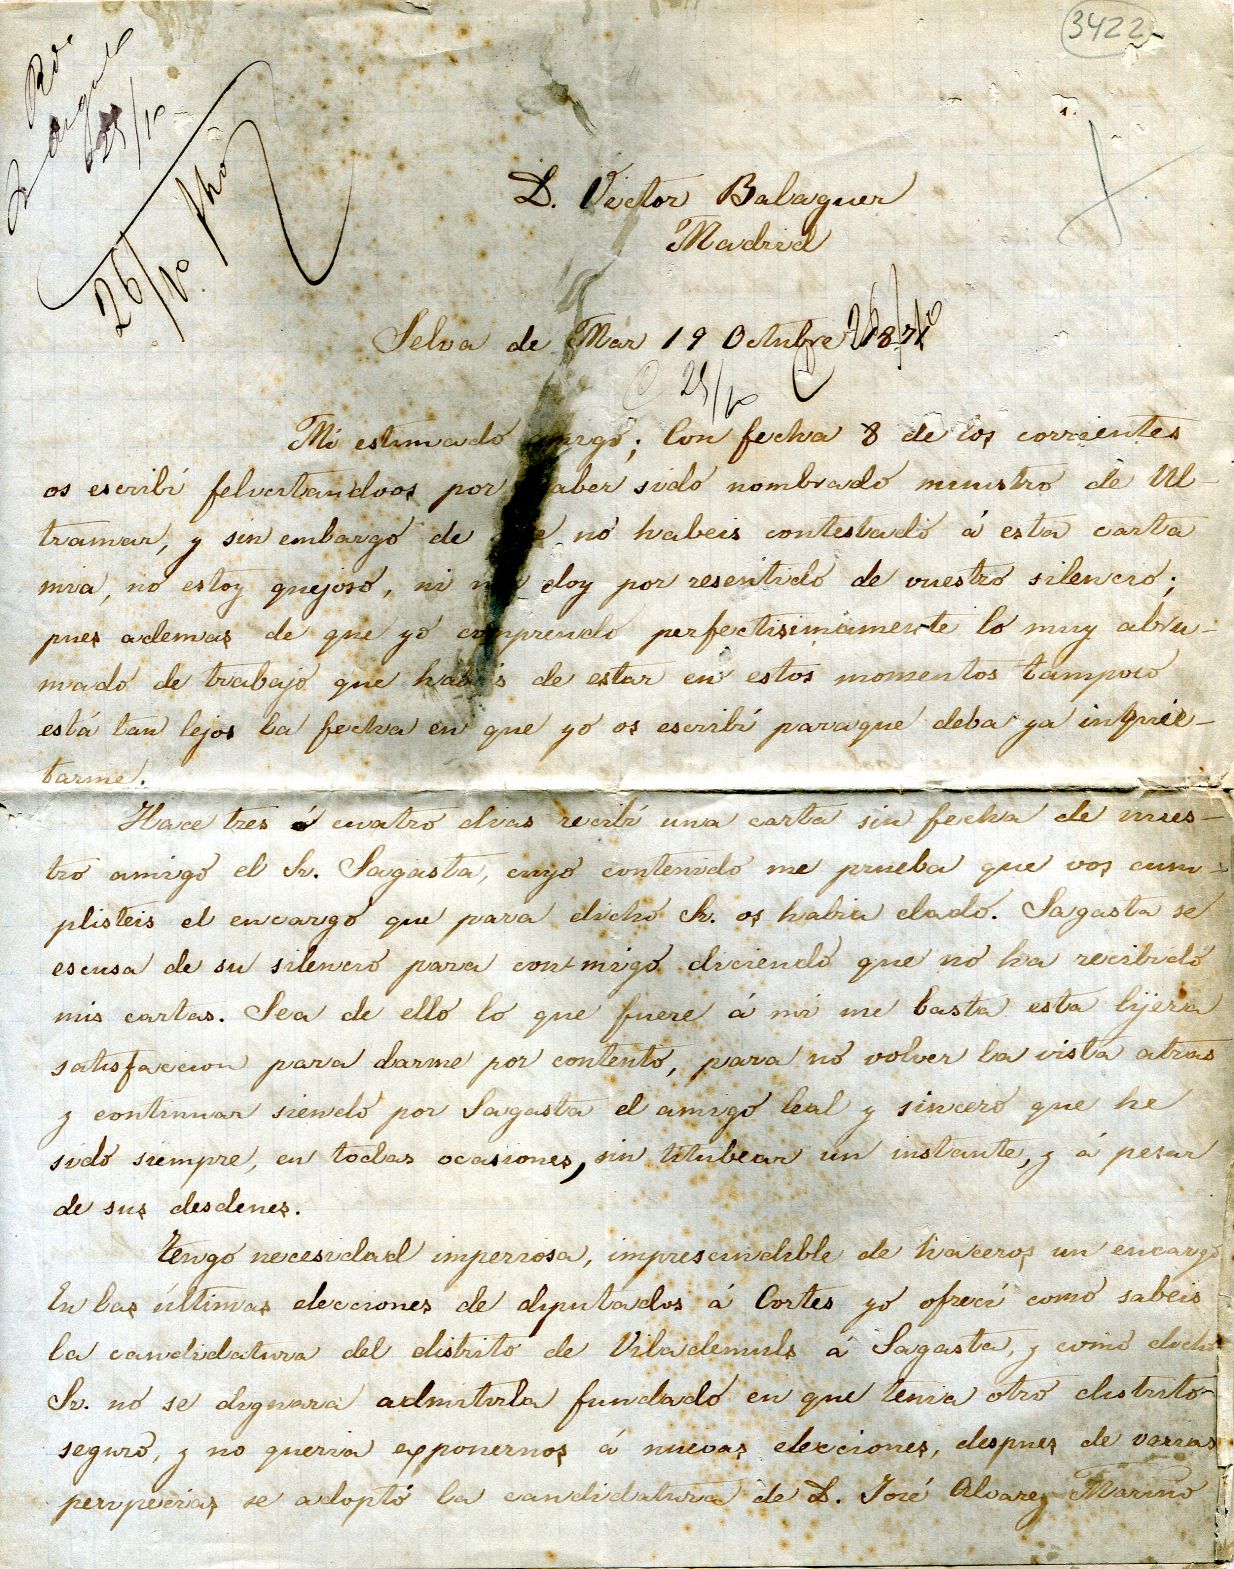 3422
Rdo
25/10
26/10 fho
D. Victor Balaguer
Madrid
Selva de Mar 19 Octubre 1871
26/10
25/10
Mi estimado amigo; Con fecha 8 de los corrientes
os escribí felicitandoos por haber sido nombrado ministro de Ul-
tramar, y sin embargo de que no habeis contestado á esta carta
mia, no estoy quejoso, ni me doy por resentido de vuestro silencio;
pues ademas de que yo comprendo perfectisimamente lo muy abru-
mado de trabajo que habeis de estar en estos momentos tampoco
está tan lejos la fecha en que yo os escribí paraque deba ya inquie-
tarme.
Hace tres ó cuatro dias recibí una carta sin fecha de nues-
tro amigo el Sr. Sagasta, cuyo contenido me prueba que vos cum-
plisteis el encargo que para dicho Sr. os habia dado. Sagasta se
escusa de su silencio para conmigo diciendo que no ha recibido
mis cartas. Sea de ello lo que fuere á mi me basta esta lijera
satisfaccion para darme por contento, para no volver la vista atras
y continuar siendo por Sagasta el amigo leal y sincero que he
sido siempre, en todas ocasiones, sin titubear un instante, y á pesar
de sus desdenes.
Tengo necesidad imperiosa, imprescindible de haceros un encargo.
En las últimas elecciones de diputados á Cortes yo ofrecí como sabeis
la candidatura del distrito de Vilademuls á Sagasta, y como dicho
Sr. no se dignara admitirla fundado en que tenia otro distrito
seguro, y no querria exponernos á nuevas elecciones, despues de varias
peripecias se adoptó la candidatura de D. José Alvarez Mariño